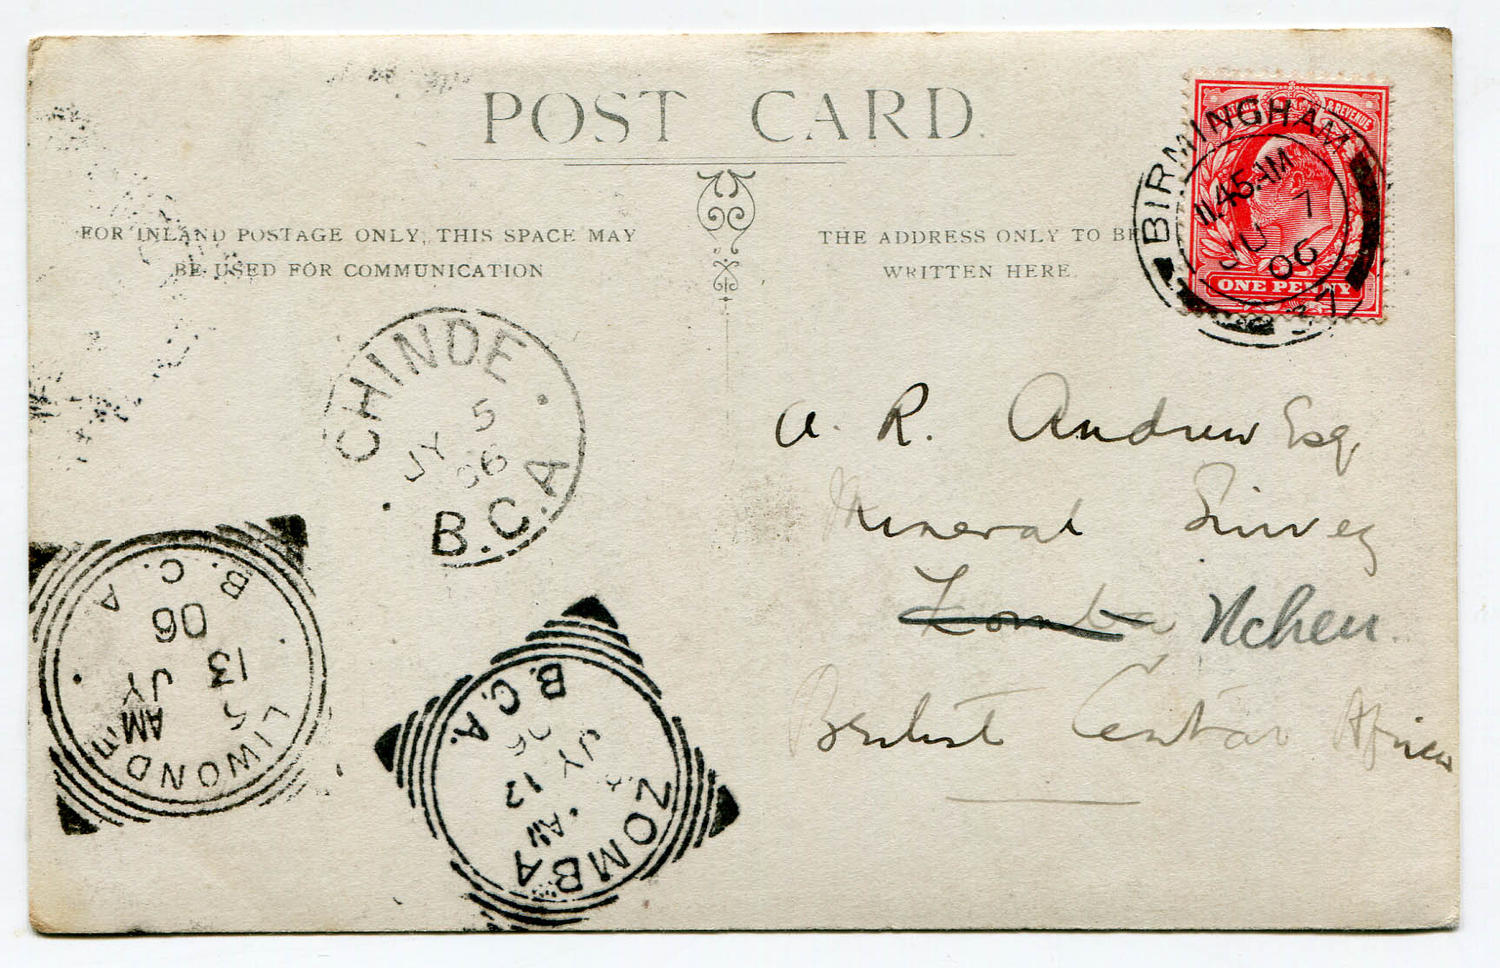 POST CARD.
FOR INLAND POSTAGE ONLY, THIS SPACE MAY
BE USED FOR COMMUNICATION
THE ADDRESS ONLY TO BE
WRITTEN HERE.
& REVENUE
ONE PENNY
BIRMINGHAM
11.45 AM
JU 7
06
A. R. Andrew Esq.
Mineral Survey
Zomba
British Central Africa
CHINDE
JY 5
06
B.C.A
LIWONDE
AM
13 JY
06
B.C.A
ZOMBA
AM
JY 12
06
B.C.A.